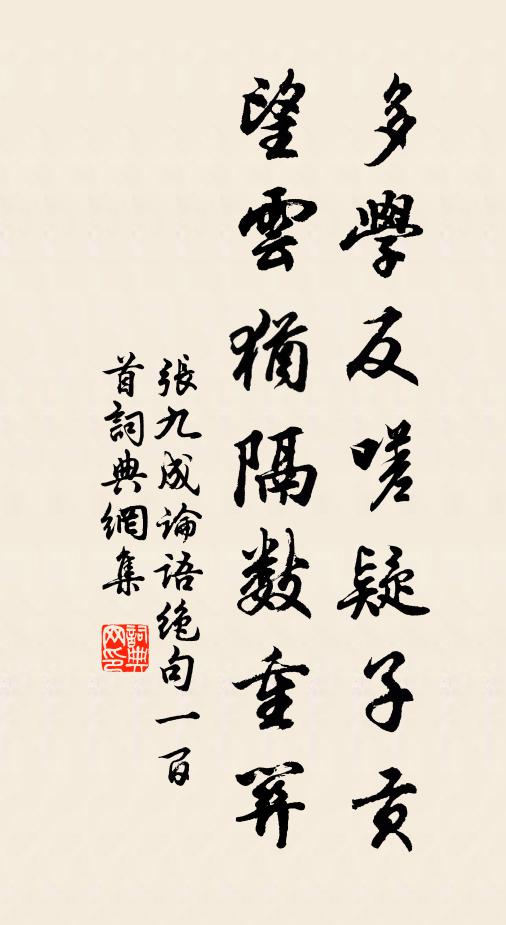 多學反嗟疑子貢
望雲猶隔數重
張九成論語絕句一百
首詞典網集
詞典网印